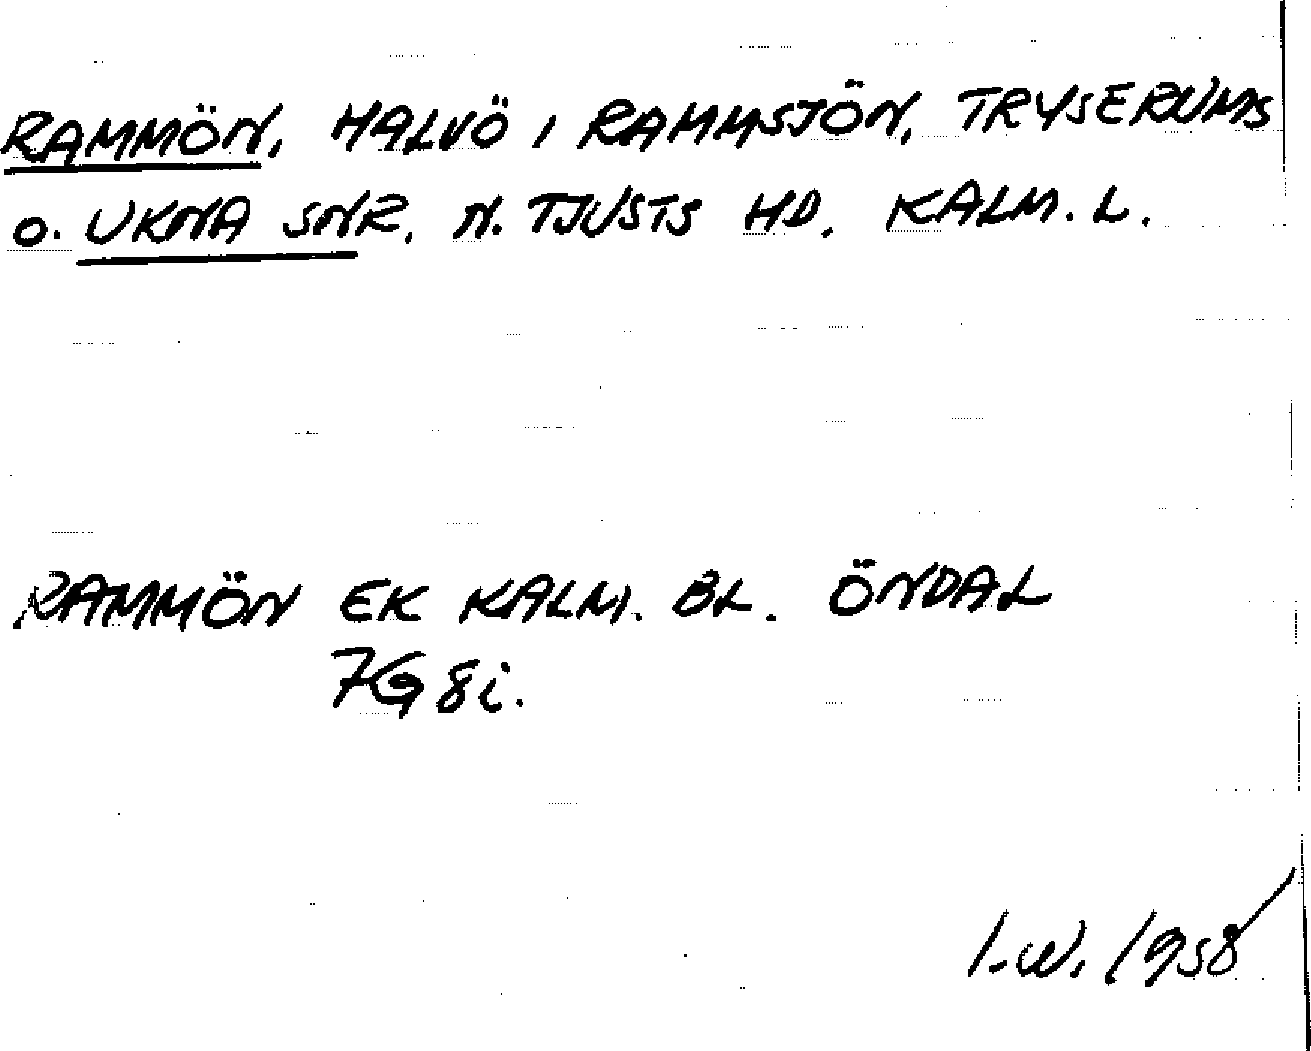 RAMMÖN, HALVÖ I RAMMSJÖN, TRYSERUMS
O. UKNA SNR. N. TJUSTS HD. KALM. L.
RAMMÖN EK KALM. BL. ÖNDAL
7G 8i.
I.W. 1958